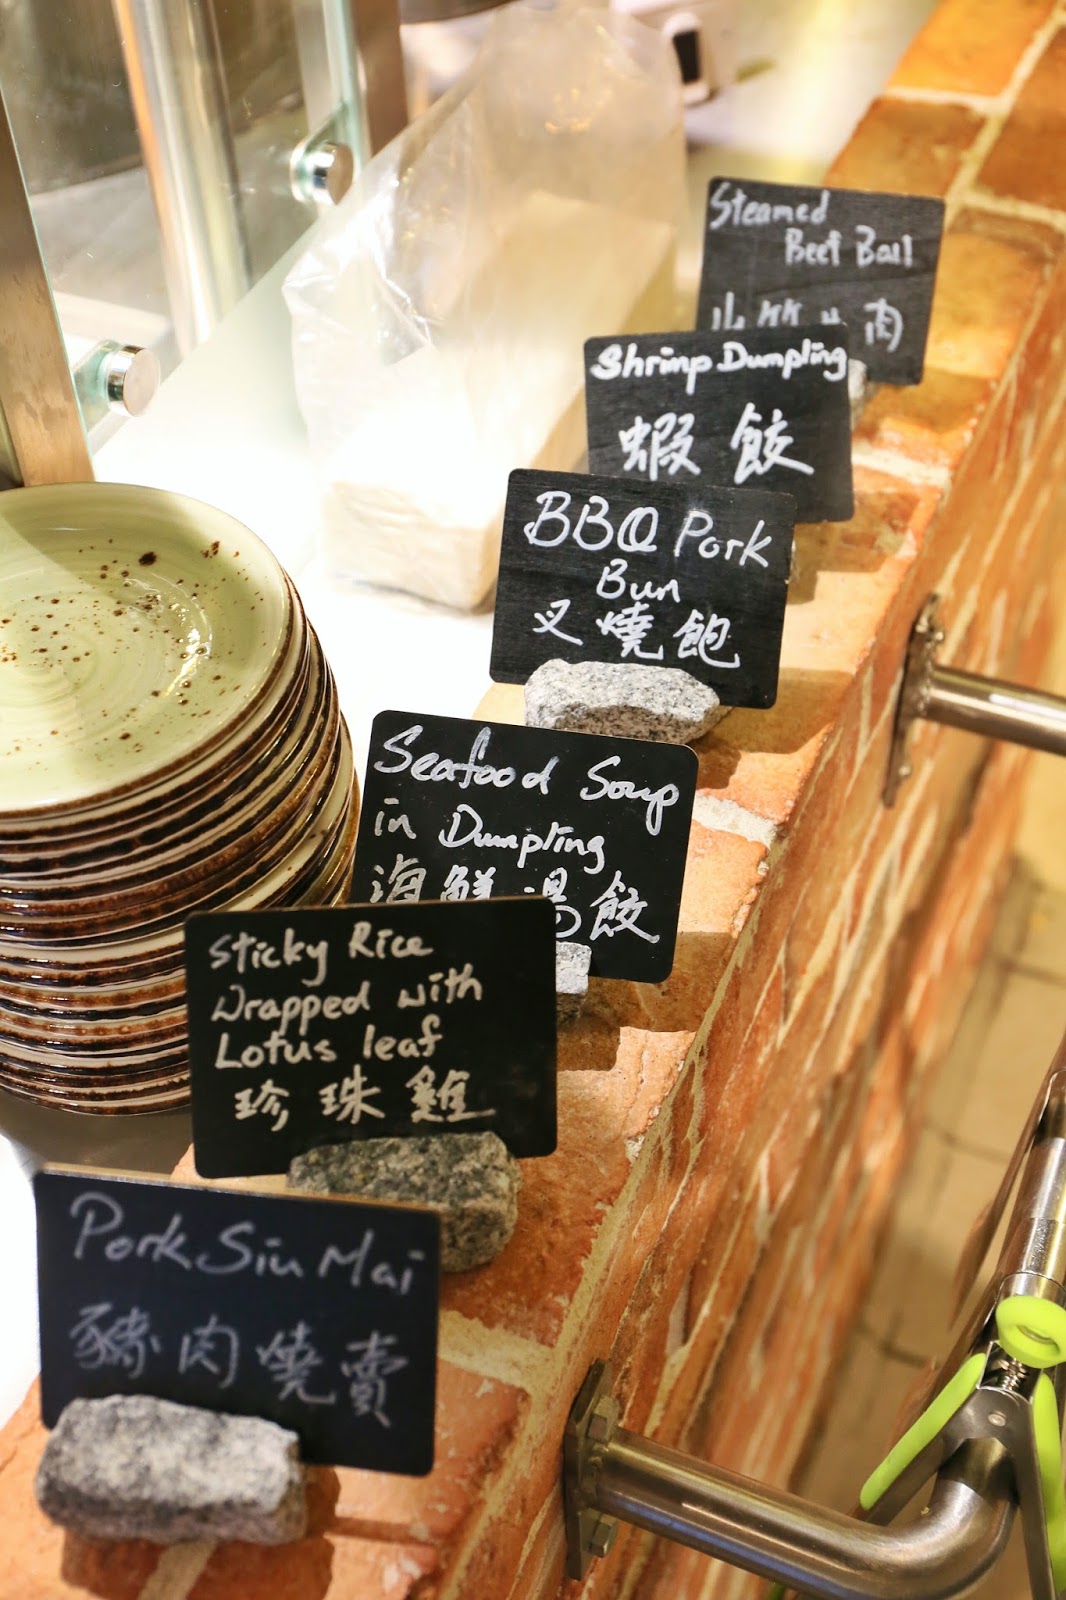 Steamed
Beef Ball
肉
Shrimp Dumpling
蝦餃
BBQ Pork
Bun
叉燒飽
Seafood Soup
in Dumpling
海鮮湯餃
Sticky Rice
Wrapped with
Lotus leaf
珍珠雞
Pork Siu Mai
豬肉燒賣